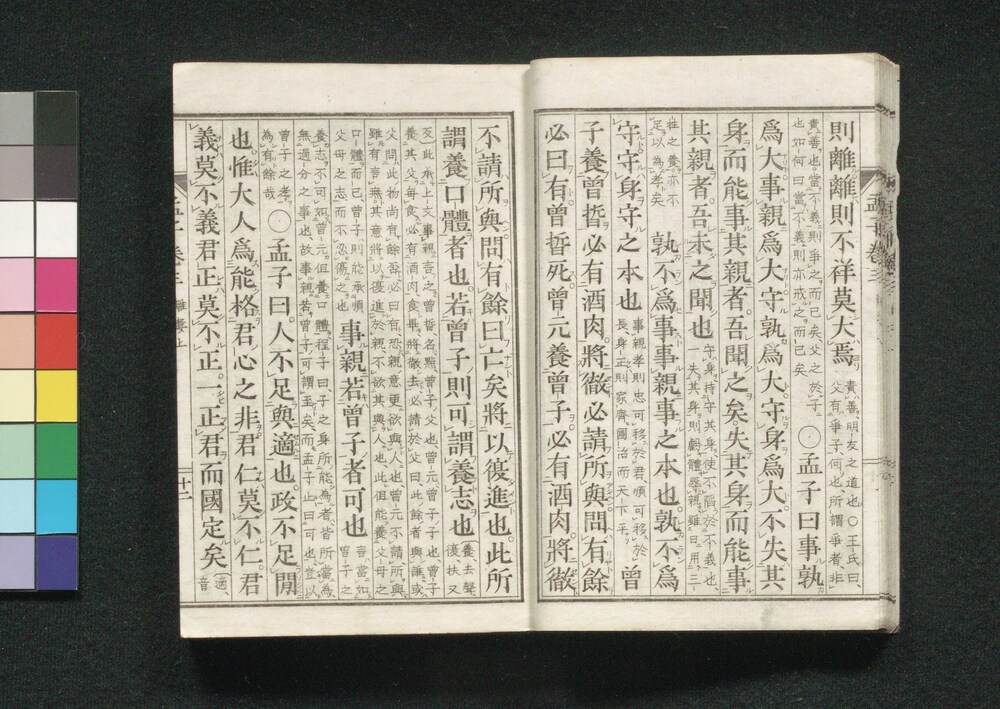 則離離則不祥莫大焉責善、朋友之道也、○王氏曰、父有爭子、何也、所謂爭者、非
責善也、當不義、則爭之而已矣、父之於子也如何、曰當不義、則亦戒之而已矣○孟子曰事孰
爲大事親爲大守孰爲大守身爲大不失其
身而能事其親者吾聞之矣失其身而能事
其親者吾未之聞也守身、持守其身、使不陷於不義也、一失其身、則虧體辱親、雖日用三
牲之養、亦不足以爲孝矣孰不爲事事親事之本也孰不爲
守守身守之本也事親孝則忠可移於君、順可移於長、身正則家齊國治而天下平曾
子養曾晳必有酒肉將徹必請所與問有餘
必曰有曾晳死曾元養曾子必有酒肉將徹
不請所與問有餘曰亡矣將以復進也此所
謂養口體者也若曾子則可謂養志也養去聲、復扶又
反、此承上文事親言之、曾晳名點、曾子父也、曾元、曾子子也、曾子養其父、每食必有酒肉、食畢將徹去、必請於父曰、此餘者與誰、或
父問此物尚有餘否、必曰有、恐親意更欲與人也、曾元不請所與、雖有言無、其意將以復進於親、不欲其與人也、此但能養父母之
口體而已、曾子則能承順父母之志、而不忍傷之也事親若曾子者可也言當如曾子之
養志、不可如曾元但養口體、程子曰、子之身所能爲者、皆所當爲、無過分之事也、故事親若曾子、可謂至矣、而孟子止曰可也、豈以
曾子之孝爲有餘哉○孟子曰人不足與適也政不足閒
也惟大人爲能格君心之非君仁莫不仁君
義莫不義君正莫不正一正君而國定矣適、音
孟子卷三 離婁上
十二